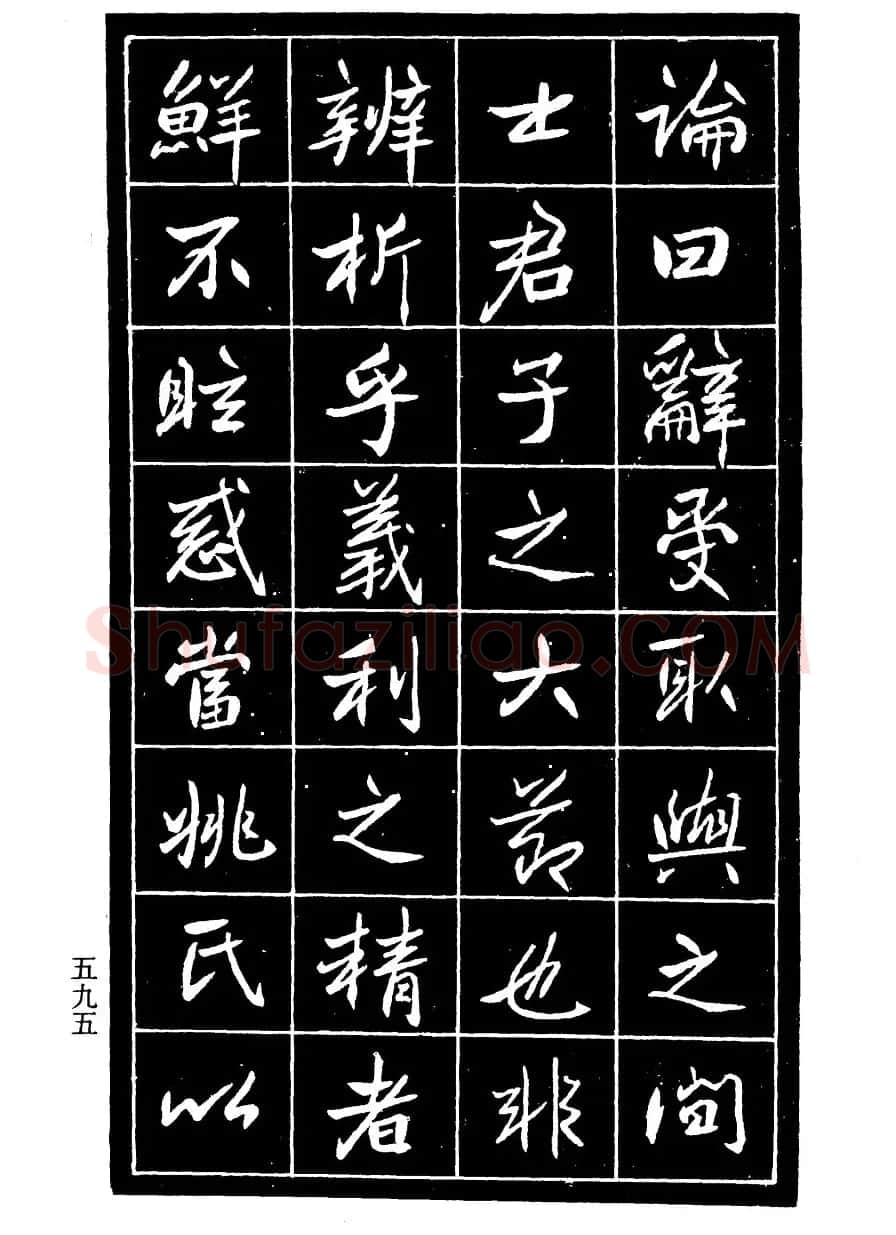 論曰辭受取與之間
士君子之大節也非
辨析乎義利之精者
鮮不眩惑當姚氏以
五九五
Shufaziliao.COM